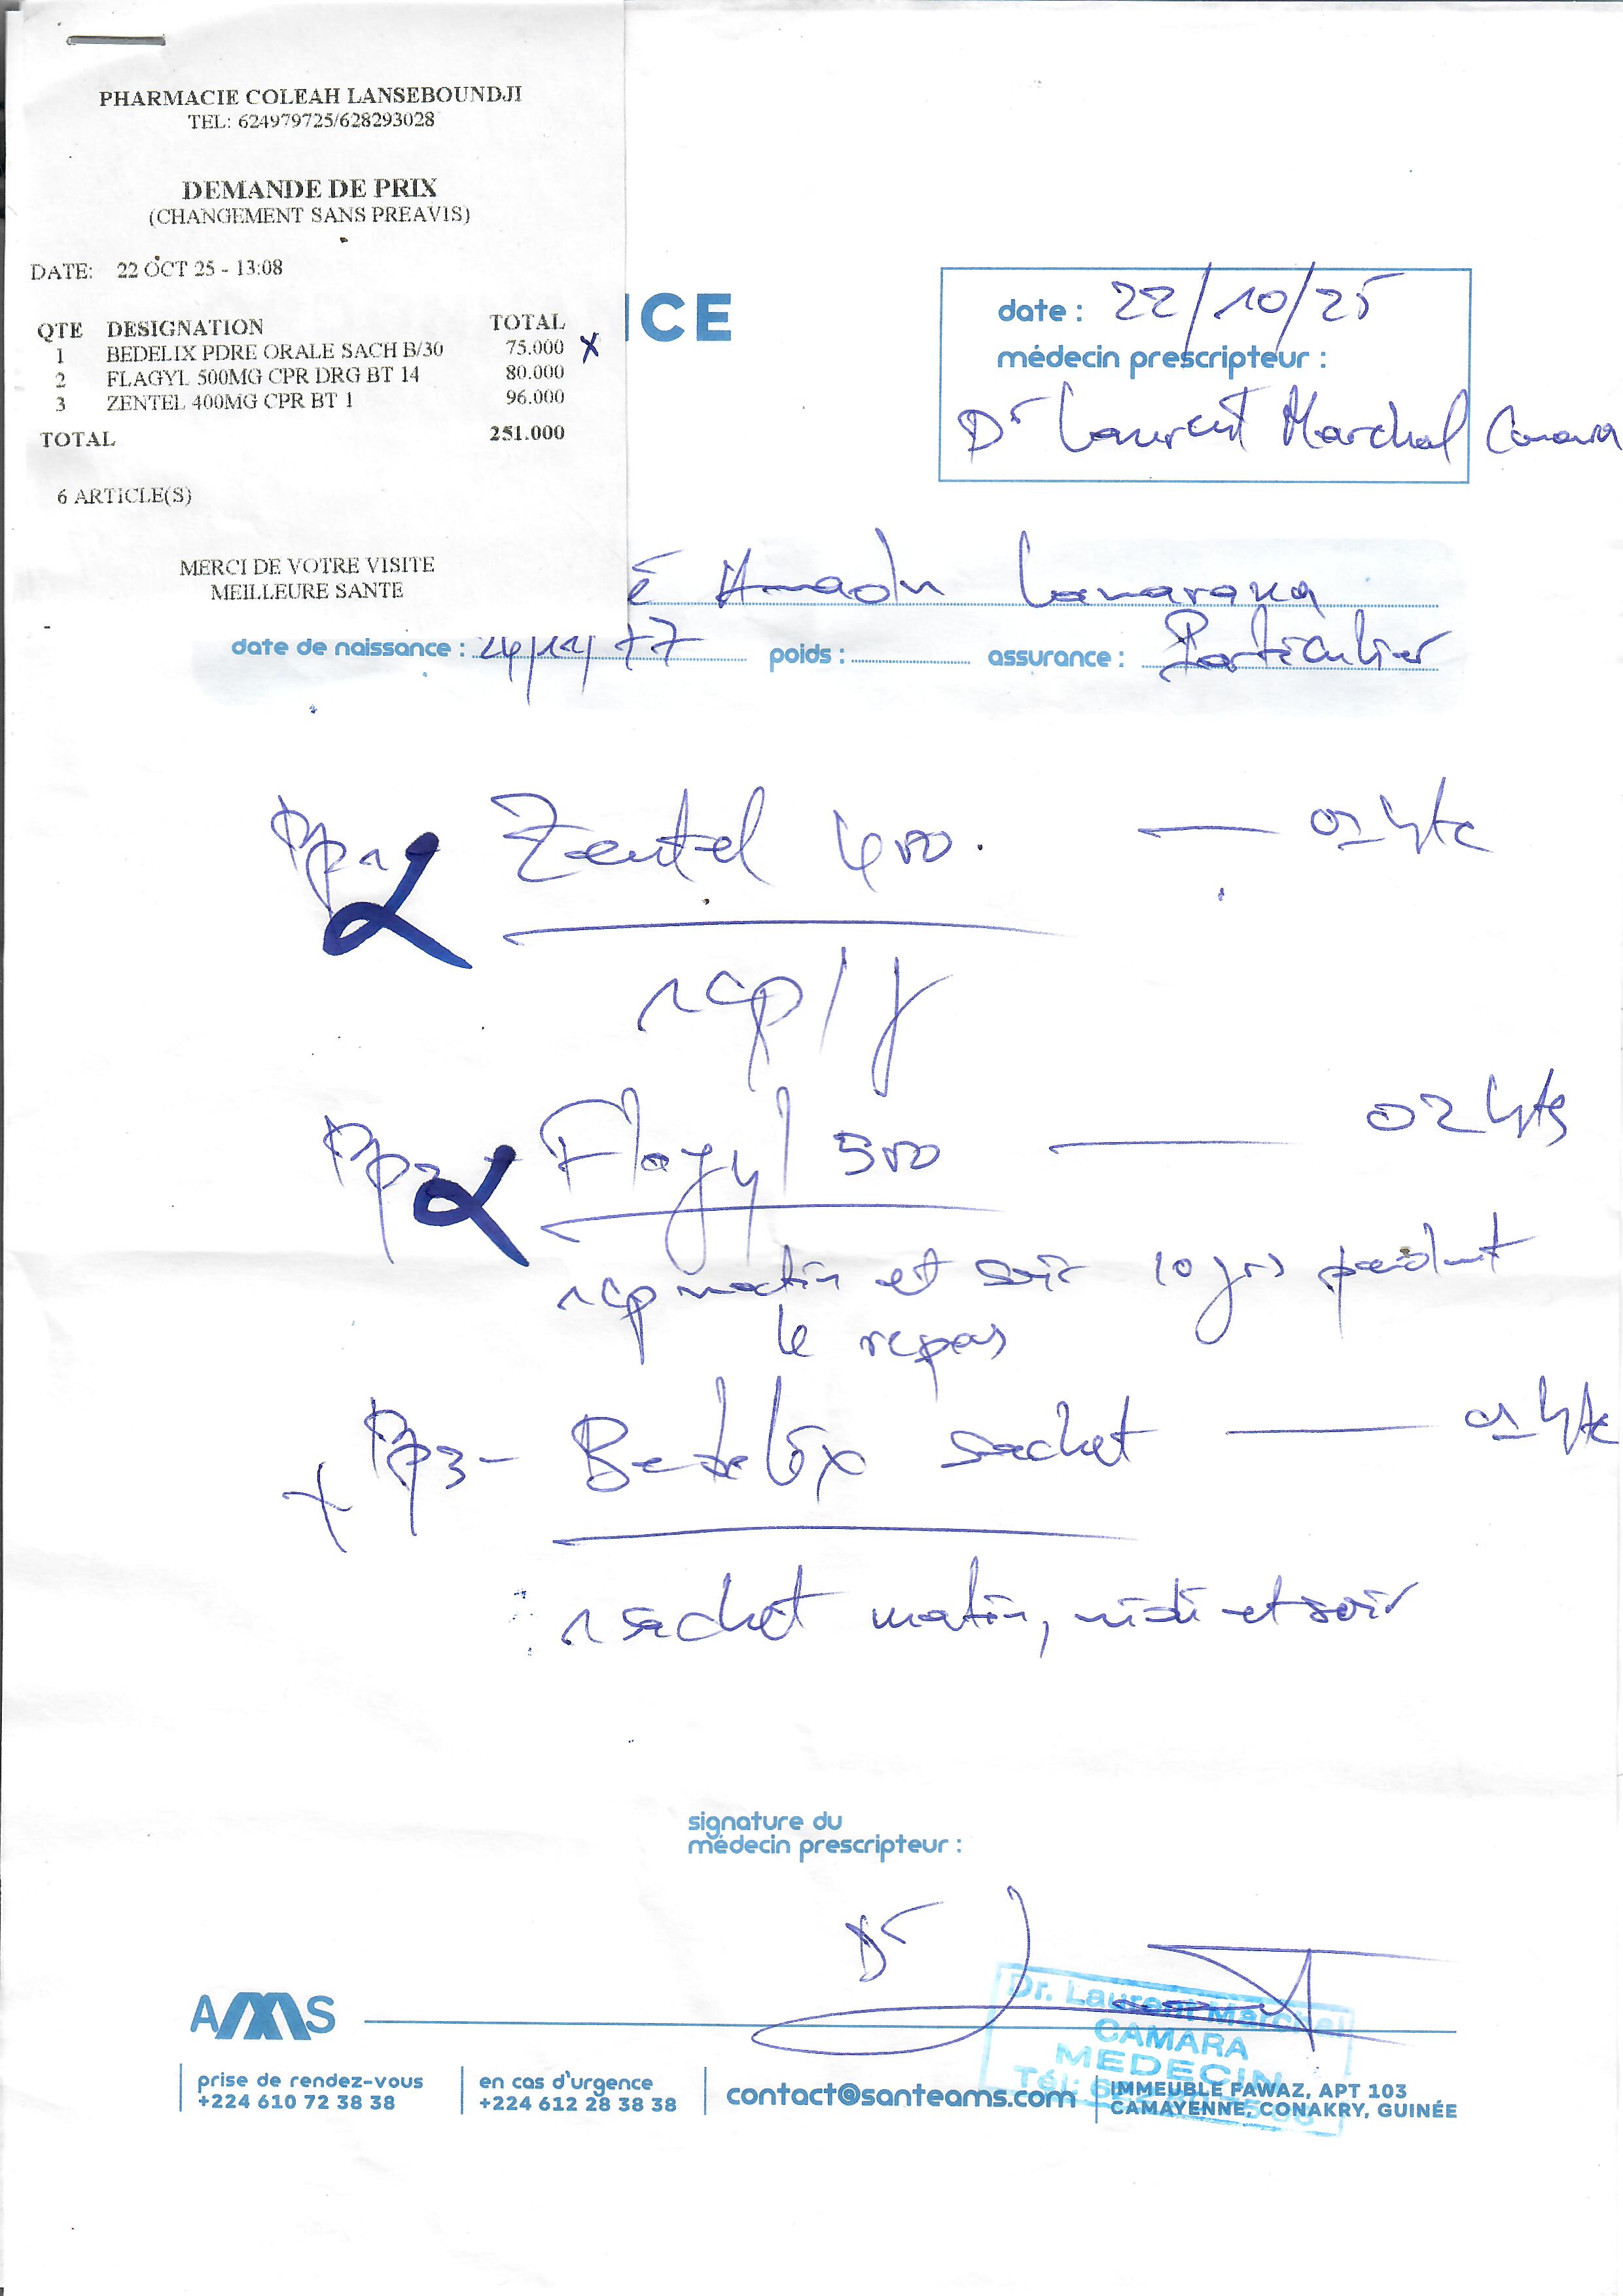 PHARMACIE COLEAH LANSEBOUNDJI
TEL: 624979725/628293028
DEMANDE DE PRIX
(CHANGEMENT SANS PREAVIS)
DATE: 22 OCT 25 - 13:08
QTE DESIGNATION TOTAL
1 BEDELIX PDRE ORALE SACH B/30 75.000 X
2 FLAGYL 500MG CPR DRG BT 14 80.000
3 ZENTEL 400MG CPR BT 1 96.000
TOTAL 251.000
6 ARTICLE(S)
MERCI DE VOTRE VISITE
MEILLEURE SANTE
ICE
date : 22/10/25
médecin prescripteur :
Dr Laurent Marchal Camara
é Amadu Lamarana
date de naissance : 24/12/77 poids : assurance : Particulier
Zentel 400. — 01 bte
1 cp / j
Flagyl 500 — 02 btes
1 cp matin et soir 10 jrs pendant
le repas
+ Rp3- Bedelix sachet — 01 bte
1 sachet matin, midi et soir
signature du
médecin prescripteur :
Dr
Dr. Laurent Marchal
CAMARA
MEDECIN
Tél:
AMS
prise de rendez-vous
+224 610 72 38 38
en cas d'urgence
+224 612 28 38 38
contact@santeams.com
IMMEUBLE FAWAZ, APT 103
CAMAYENNE, CONAKRY, GUINÉE